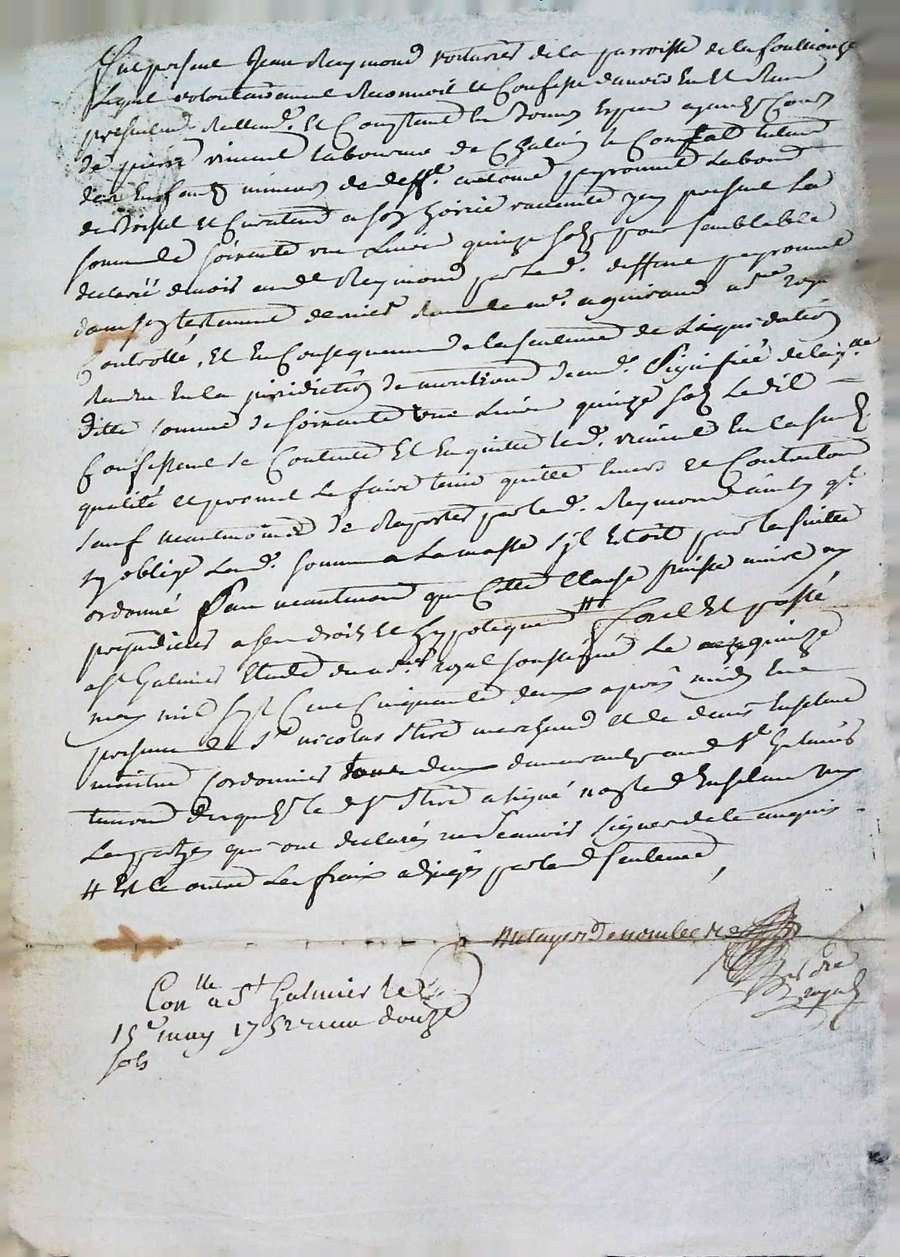 Fut présent Jean Reymond voiturier de la parroisse de la fouillouze
Lequel volontairement Reconnoit et Confesse d'avoir Eu et Receu
présentement Reellem.t Et Comptant En bonnes Especes ayant Cours
de pierre vincent laboureur de Chalain le Comtal tuteur
des Enfants mineurs de deff.t peyronnet
de et Curateur a hoirie vacante present La
somme de soixante une Livres quinze sols pour semblable
declarée d'avois aud Reymond par led. deffunt peyronnet
dans son testament dernier Receu me. aguiraud n.re royal
Controllé, Et En Consequence de la sentence de Liquidation
Rendue En la juridiction de dem.d. Signifiée de laq.lle
ditte somme de soixante une Livres quinze sols Ledit
Confessant se Contente Et En quitte led. vincent En lad
qualité et promet Le faire tenir quitte Envers et Contre tous
sauf neantmoins de Raporter par led. Reymond ainsy q.l
sy oblige Lad. somme a La masse s'il Etoit par la suitte
ordonné sans neantmoins que Cette Clause puisse nuire ny
prejudicier a ses droits et hypoteques # Fait Et passé
a St Galmier Etude du n.re royal soussigné Le quinze
may mil sept Cent Cinquante deux apres midy En
presence de Sr nicolas marchand et de denis Enselme
maitre Cordonnier tous deux demeurants aud St Galmier
temoins desquels led Sr a signé non led Enselme ny
Les parties qui ont declaré ne sçavoir signer de ce enquis
# Et ce outre Les frais par led seulement
Con.lle a St Galmier le
15e may 1752 receu douze
sols
royal